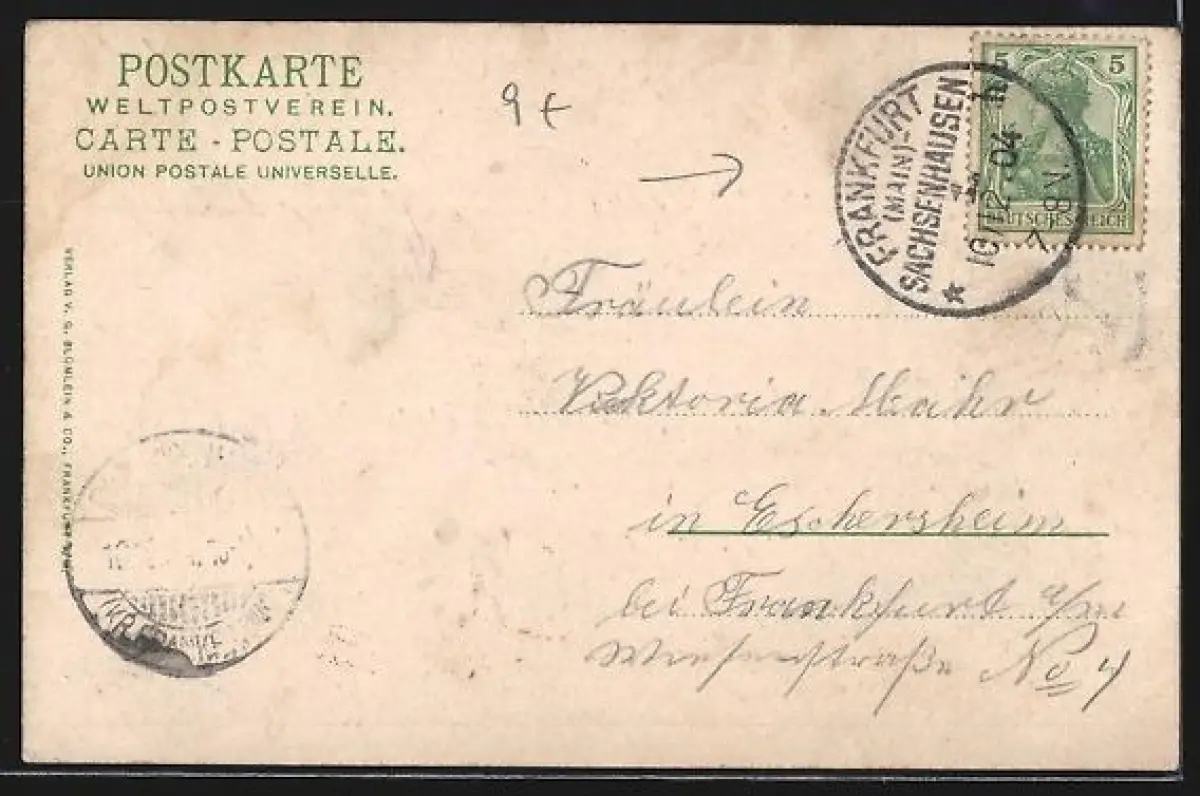 POSTKARTE
WELTPOSTVEREIN.
CARTE - POSTALE.
UNION POSTALE UNIVERSELLE.
9 €
FRANKFURT
(MAIN)-
SACHSENHAUSEN
10/12.04
8-
N
5 5
DEUTSCHES REICH
VERLAG V. G. BLÜMLEIN & CO., FRANKFURT
Fräulein
Viktoria Mahr
in Eschersheim
bei Frankfurt a/m
Wiesenstraße No 4